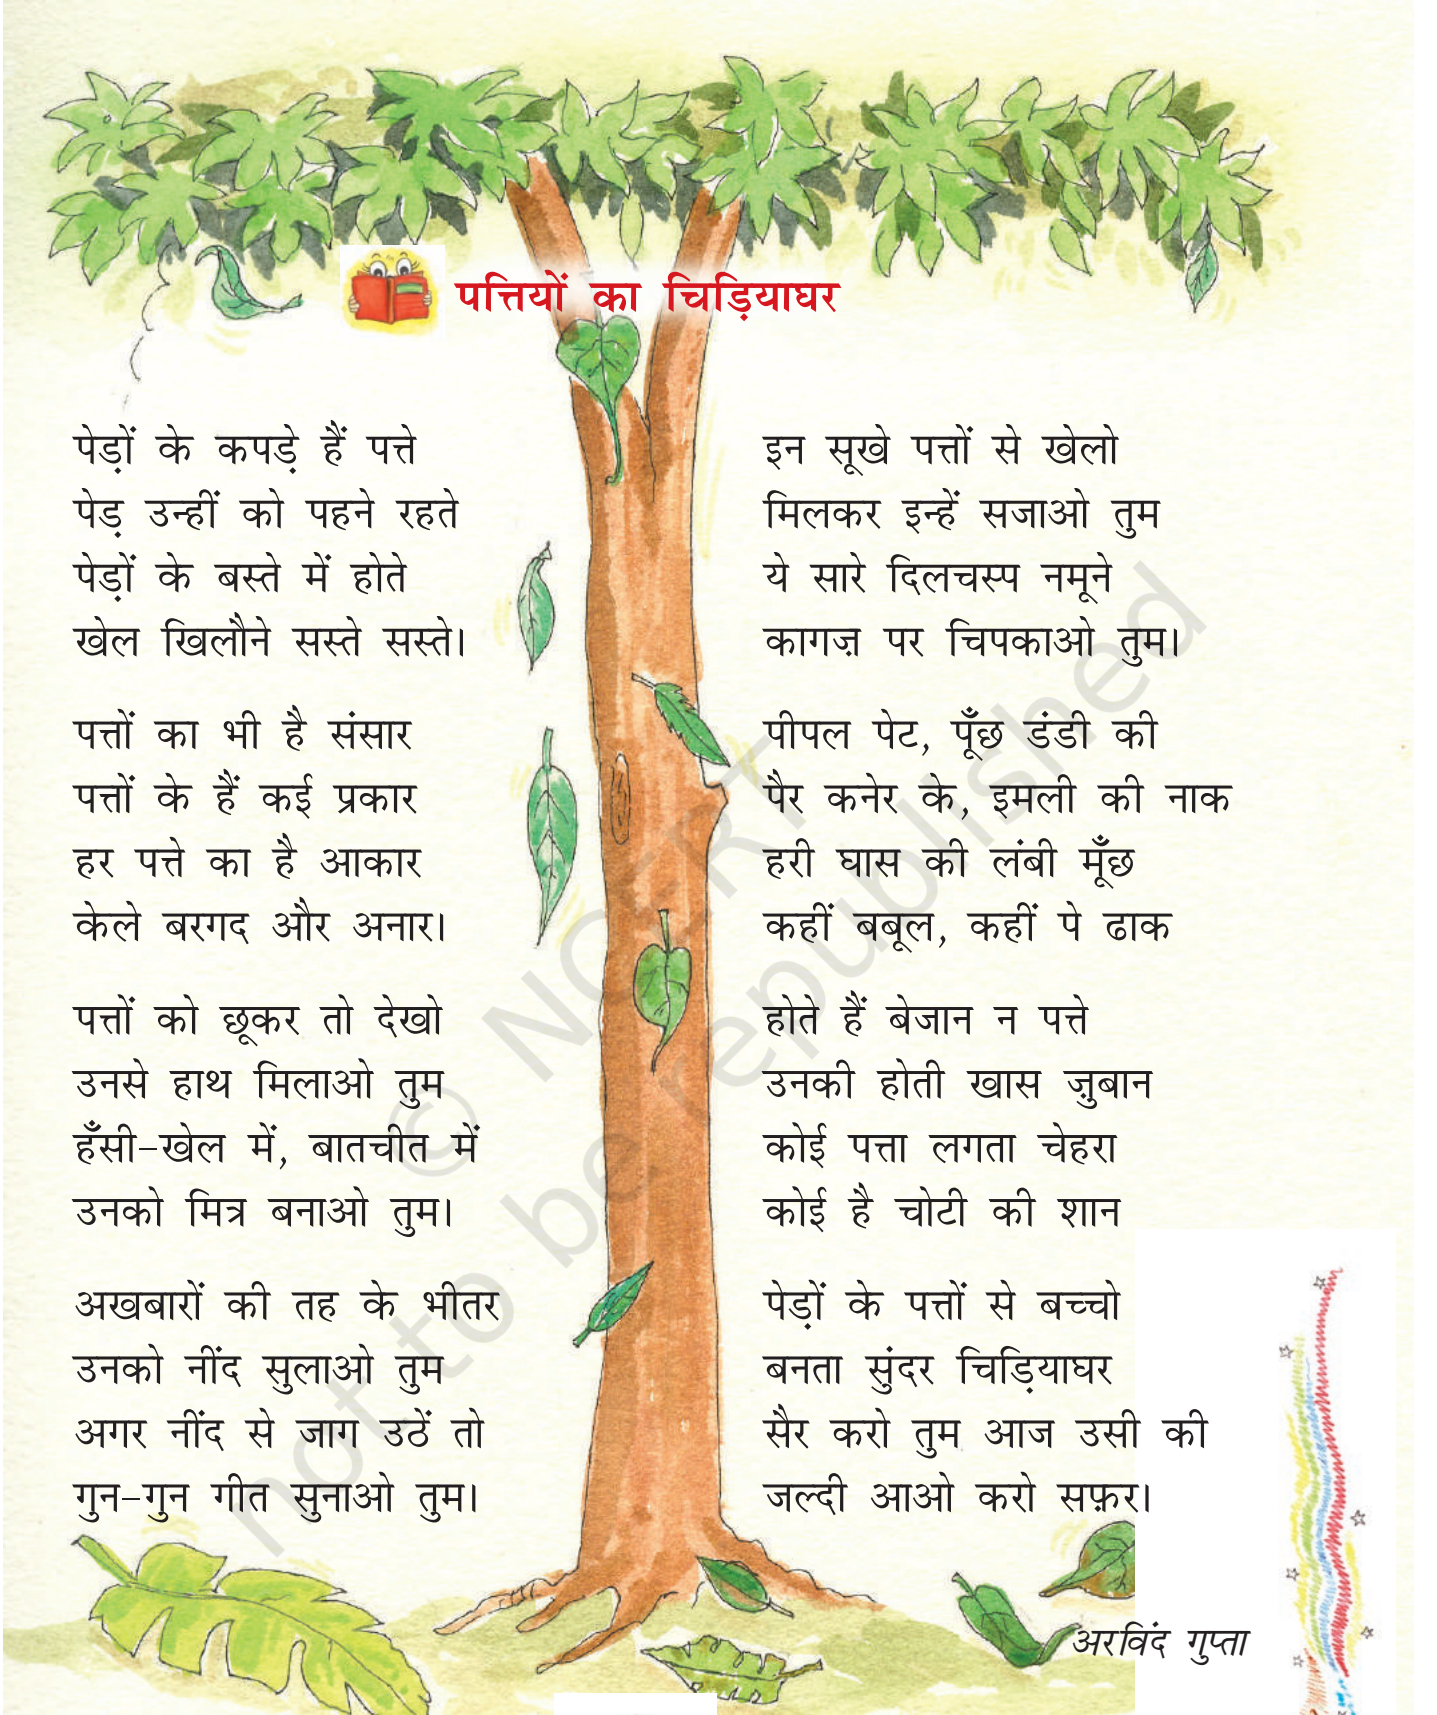 पत्तियों का चिड़ियाघर
पेड़ों के कपड़े हैं पत्ते
पेड़ उन्हीं को पहने रहते
पेड़ों के बस्ते में होते
खेल खिलौने सस्ते सस्ते।
पत्तों का भी है संसार
पत्तों के हैं कई प्रकार
हर पत्ते का है आकार
केले बरगद और अनार।
पत्तों को छूकर तो देखो
उनसे हाथ मिलाओ तुम
हँसी-खेल में, बातचीत में
उनको मित्र बनाओ तुम।
अखबारों की तह के भीतर
उनको नींद सुलाओ तुम
अगर नींद से जाग उठें तो
गुन-गुन गीत सुनाओ तुम।
इन सूखे पत्तों से खेलो
मिलकर इन्हें सजाओ तुम
ये सारे दिलचस्प नमूने
कागज़ पर चिपकाओ तुम।
पीपल पेट, पूँछ डंडी की
पैर कनेर के, इमली की नाक
हरी घास की लंबी मूँछ
कहीं बबूल, कहीं पे ढाक
होते हैं बेजान न पत्ते
उनकी होती खास ज़ुबान
कोई पत्ता लगता चेहरा
कोई है चोटी की शान
पेड़ों के पत्तों से बच्चो
बनता सुंदर चिड़ियाघर
सैर करो तुम आज उसी की
जल्दी आओ करो सफ़र।
अरविंद गुप्ता
© NCERT
not to be republished